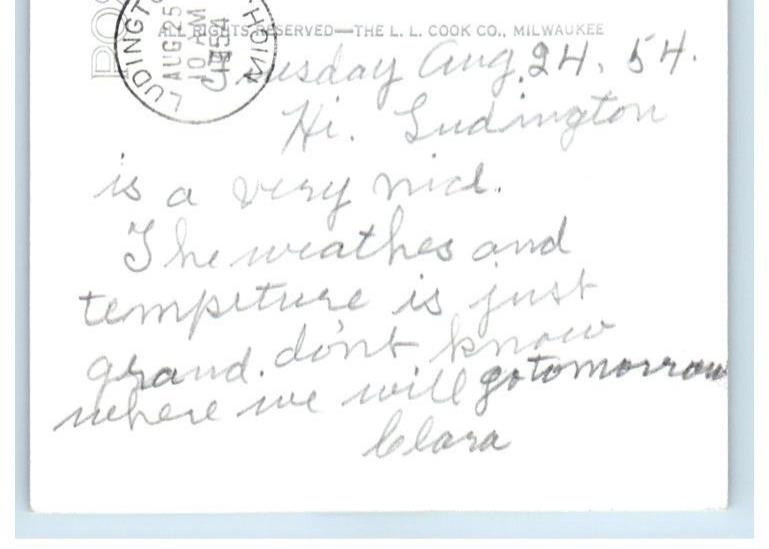 POS
LUDINGTO
MICH.
AUG 25
10 AM
1954
ALL RIGHTS RESERVED—THE L. L. COOK CO., MILWAUKEE
Tuesday Aug. 24, 54.
Hi. Ludington
is a very nice.
The weathes and
tempiture is just
grand. don't know
where we will go tomorrow
Clara